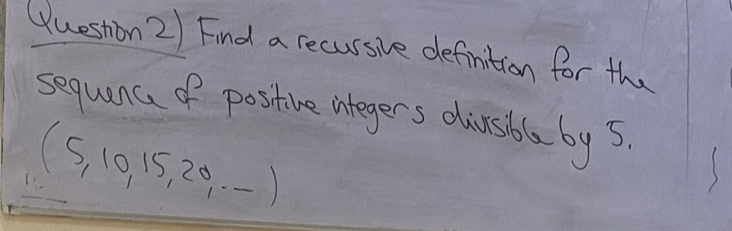 Question 2) Find a recursive definition for the
sequence of positive integers divisible by 5.
(5, 10, 15, 20, ...)